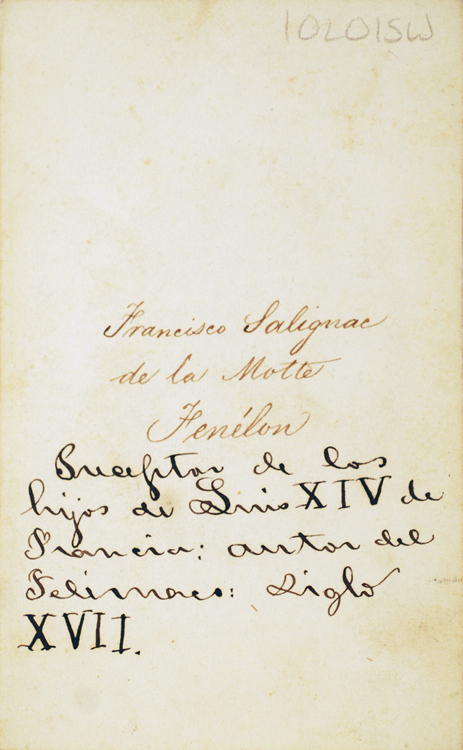 10201SW
Francisco Salignac
de la Motte
Fenélon
Preceptor de los
hijos de Luis XIV de
Francia: autor del
Telimaco: siglo
XVII.